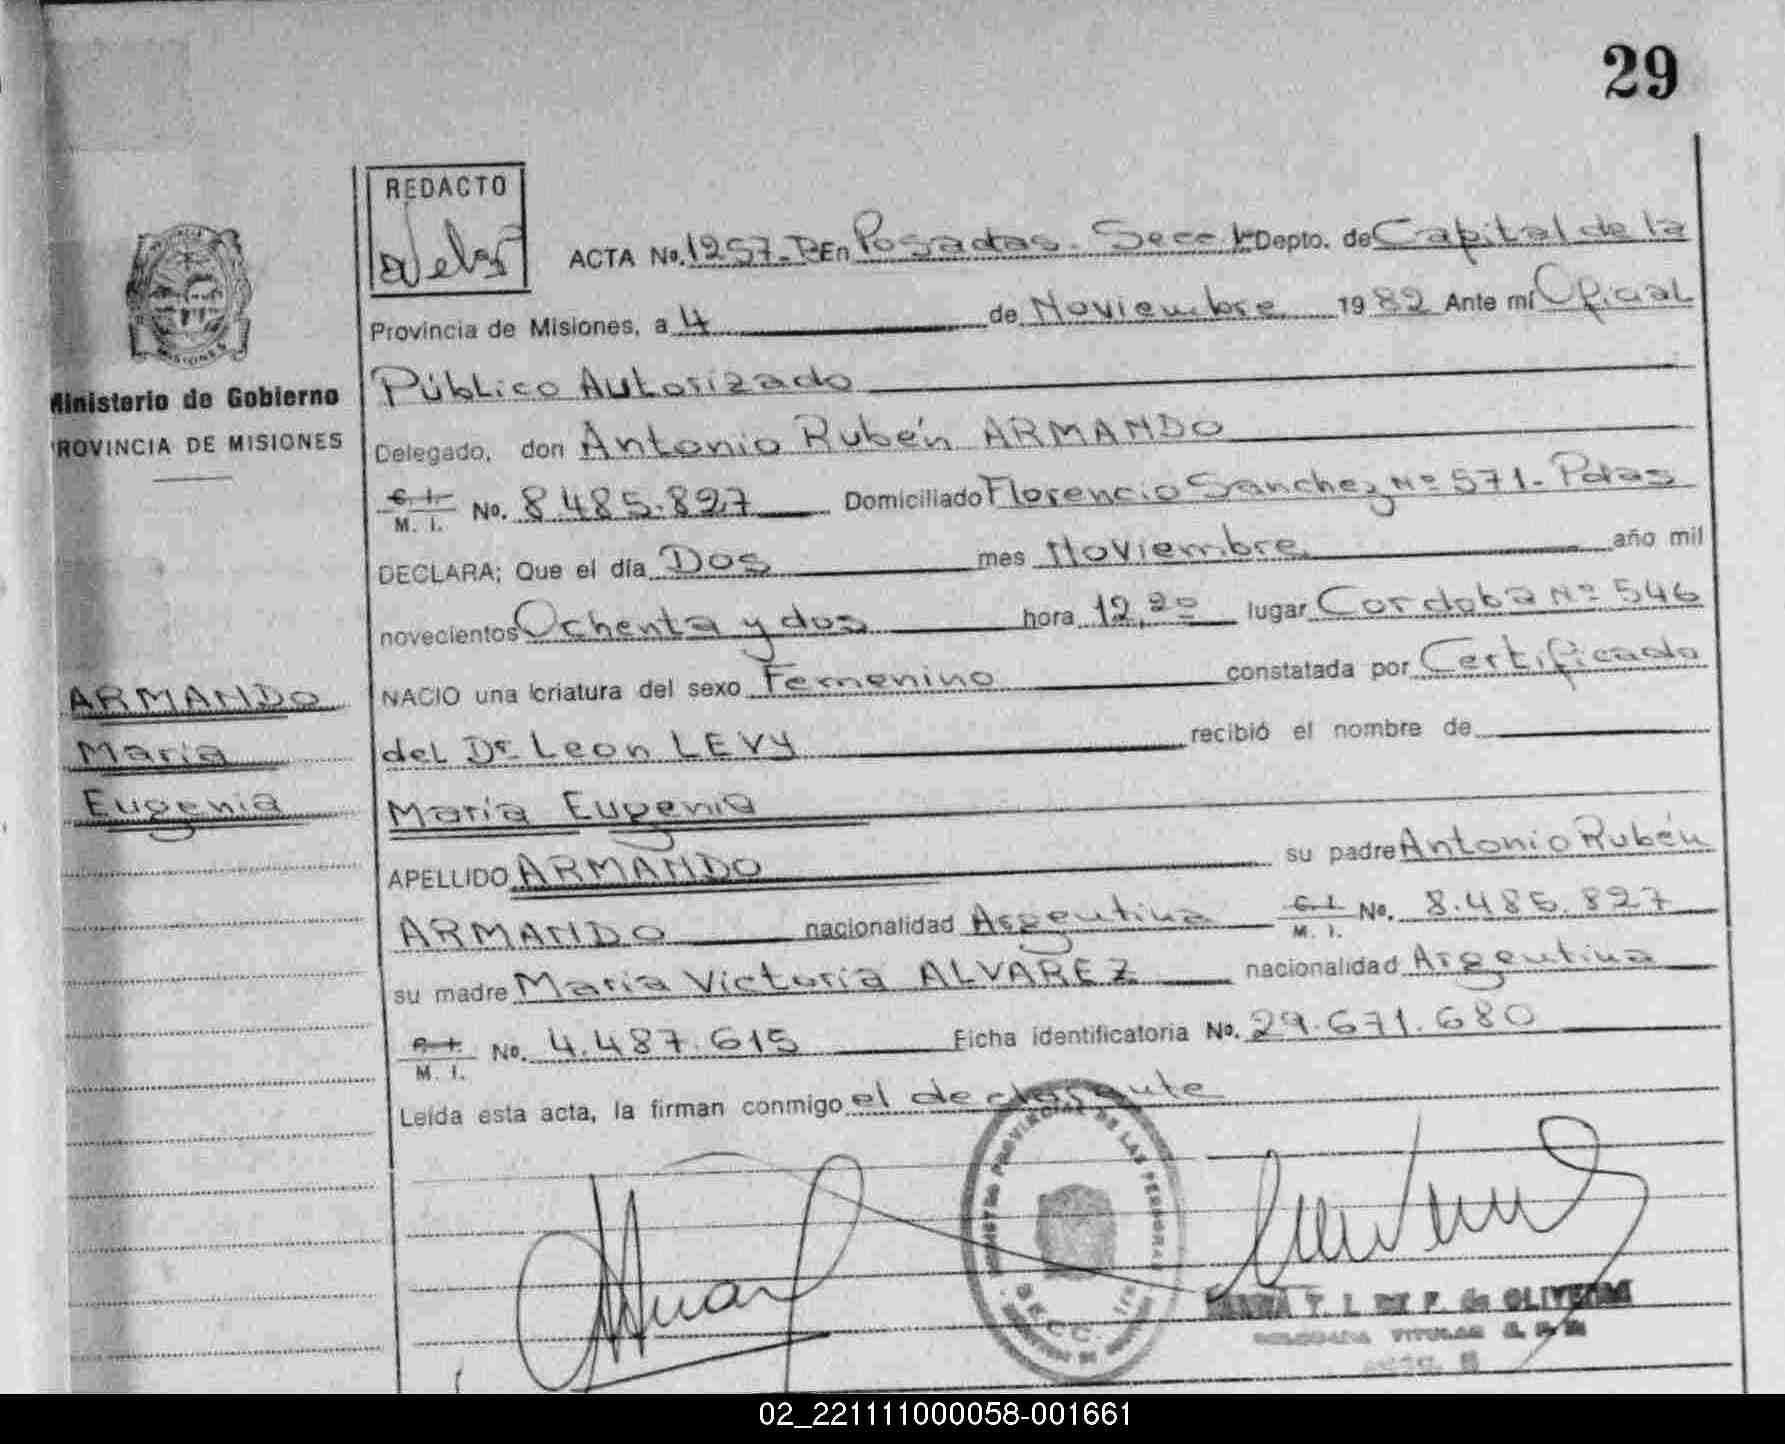 29
REDACTO
ACTA No. 1257-P- En Posadas. Secc 1ª Depto. de Capital de la
Provincia de Misiones, a 4 de Noviembre 1982 Ante mí Oficial
Público Autorizado
Delegado, don Antonio Rubén ARMANDO
C. I. M. I. No. 8.485.827 Domiciliado Florencio Sanchez Nº 571- Pdas
DECLARA; Que el día Dos mes Noviembre año mil
novecientos Ochenta y dos hora 12,20 lugar Cordoba Nº 546
NACIO una criatura del sexo Femenino constatada por Certificado
del Dr Leon LEVY recibió el nombre de
María Eugenia
APELLIDO ARMANDO su padre Antonio Rubén
ARMANDO nacionalidad Argentina C. I. M. I. No. 8.485.827
su madre María Victoria ALVAREZ nacionalidad Argentina
C. I. M. I. No. 4.487.615 Ficha identificatoria No. 29.671.680
Leída esta acta, la firman conmigo el declarante
MISIONES
Ministerio de Gobierno
PROVINCIA DE MISIONES
ARMANDO
María
Eugenia
PROVINCIAL DE LAS PERSONAS
de OLIVEIRA
TITULAR
02_221111000058-001661